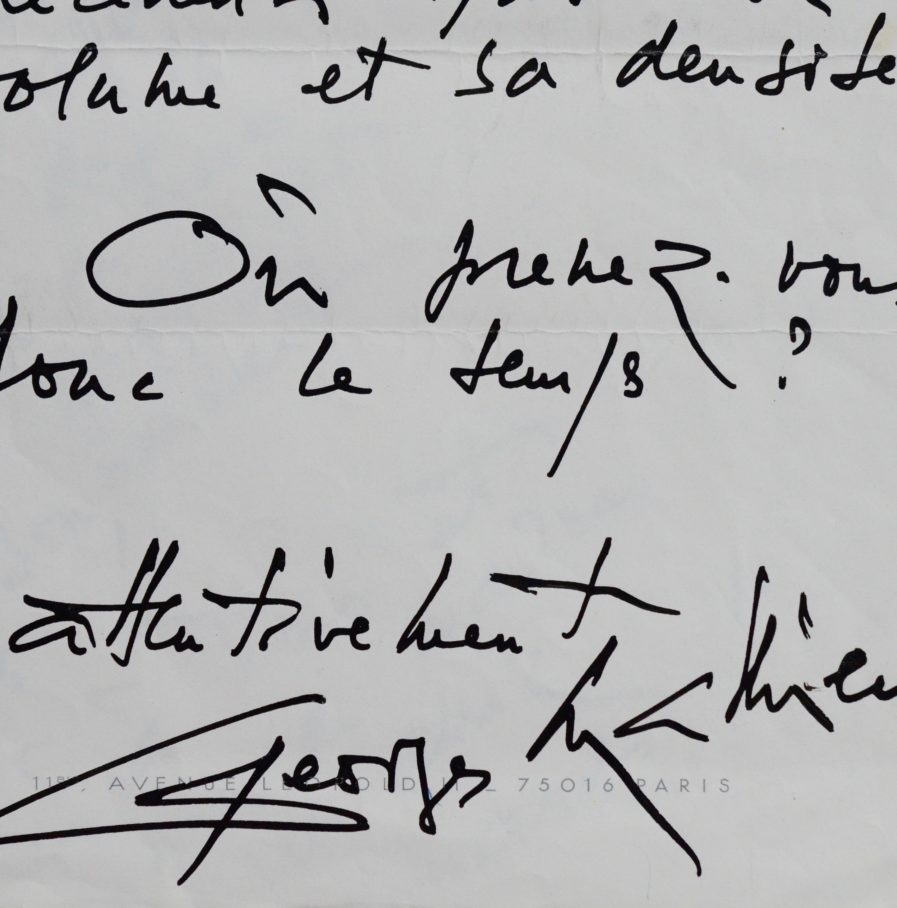 volume et sa densité
Où prenez-vous
donc le temps ?
attentivement
Georges Mathieu
11BIS, AVENUE LEOPOLD II _ 75016 PARIS